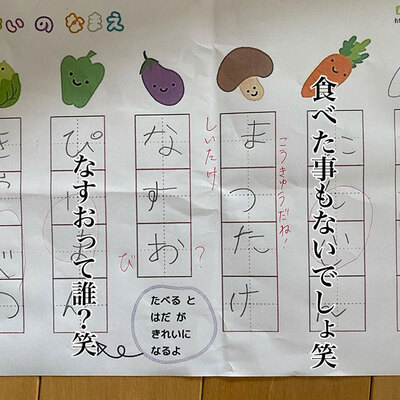 いのなまえ
食べた事もないでしょ笑
こうきゅうだね!
まつたけ
しいたけ
なすお
び?
なすおって誰?笑
たべると
はだが
きれいに
なるよ